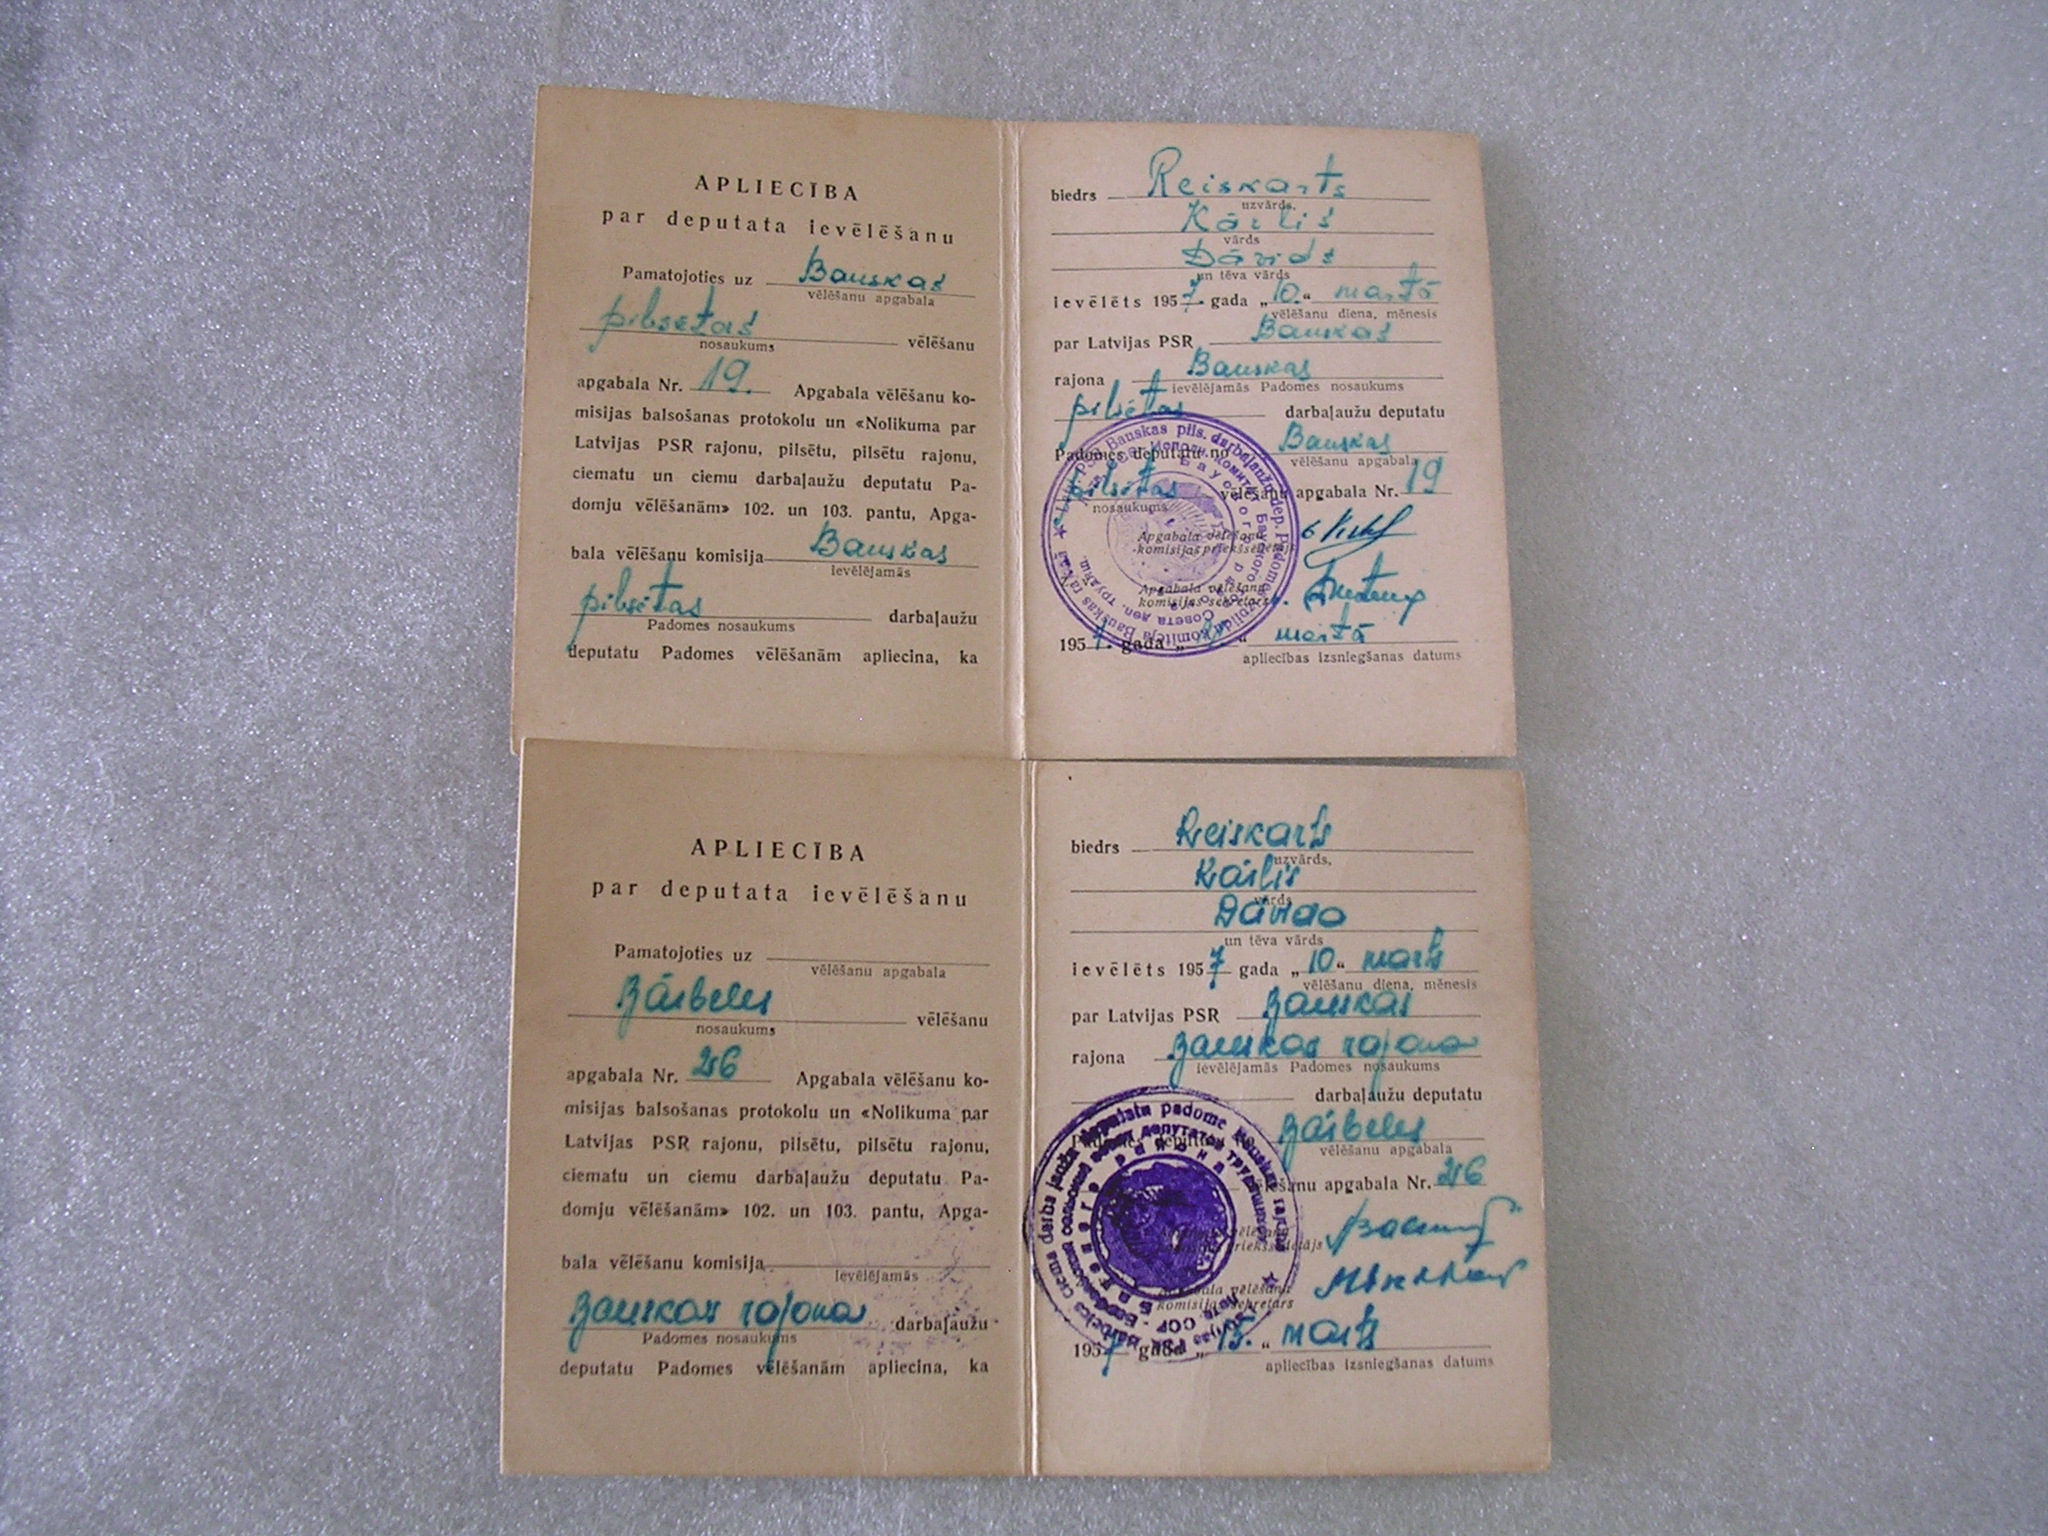 APLIECĪBA
par deputata ievēlēšanu
Pamatojoties uz Bauskas
vēlēšanu apgabala
pilsētas vēlēšanu
nosaukums
apgabala Nr. 19. Apgabala vēlēšanu ko-
misijas balsošanas protokolu un «Nolikuma par
Latvijas PSR rajonu, pilsētu, pilsētu rajonu,
ciematu un ciemu darbaļaužu deputatu Pa-
domju vēlēšanām» 102. un 103. pantu, Apga-
bala vēlēšanu komisija Bauskas
ievēlējamās
pilsētas darbaļaužu
Padomes nosaukums
deputatu Padomes vēlēšanām apliecina, ka
biedrs Reiskarts
uzvārds,
Kārlis
vārds
Dāvids
un tēva vārds
ievēlēts 1957. gada „10.“ martā
vēlēšanu diena, mēnesis
par Latvijas PSR Bauskas
rajona Bauskas
ievēlējamās Padomes nosaukums
pilsētas darbaļaužu deputatu
Padomes deputatu no Bauskas
vēlēšanu apgabala
pilsētas vēlēšanu apgabala Nr. 19
nosaukums
Apgabala vēlēšanu
komisijas priekšsēdētājs
Apgabala vēlēšanu
komisijas sekretārs
1957. gada „ “ martā
apliecības izsniegšanas datums
APLIECĪBA
par deputata ievēlēšanu
Pamatojoties uz
vēlēšanu apgabala
Bārbeles vēlēšanu
nosaukums
apgabala Nr. 26 Apgabala vēlēšanu ko-
misijas balsošanas protokolu un «Nolikuma par
Latvijas PSR rajonu, pilsētu, pilsētu rajonu,
ciematu un ciemu darbaļaužu deputatu Pa-
domju vēlēšanām» 102. un 103. pantu, Apga-
bala vēlēšanu komisija
ievēlējamās
Bauskas rajona darbaļaužu
Padomes nosaukums
deputatu Padomes vēlēšanām apliecina, ka
biedrs Reiskarts
uzvārds,
Kārlis
vārds
Dāvida
un tēva vārds
ievēlēts 1957 gada „10“ marts
vēlēšanu diena, mēnesis
par Latvijas PSR Bauskas
rajona Bauskas rajona
ievēlējamās Padomes nosaukums
darbaļaužu deputatu
Padomes deputatu Bārbeles
vēlēšanu apgabala
vēlēšanu apgabala Nr. 26
komisijas sekretārs
1957 gada „15.“ marts
apliecības izsniegšanas datums